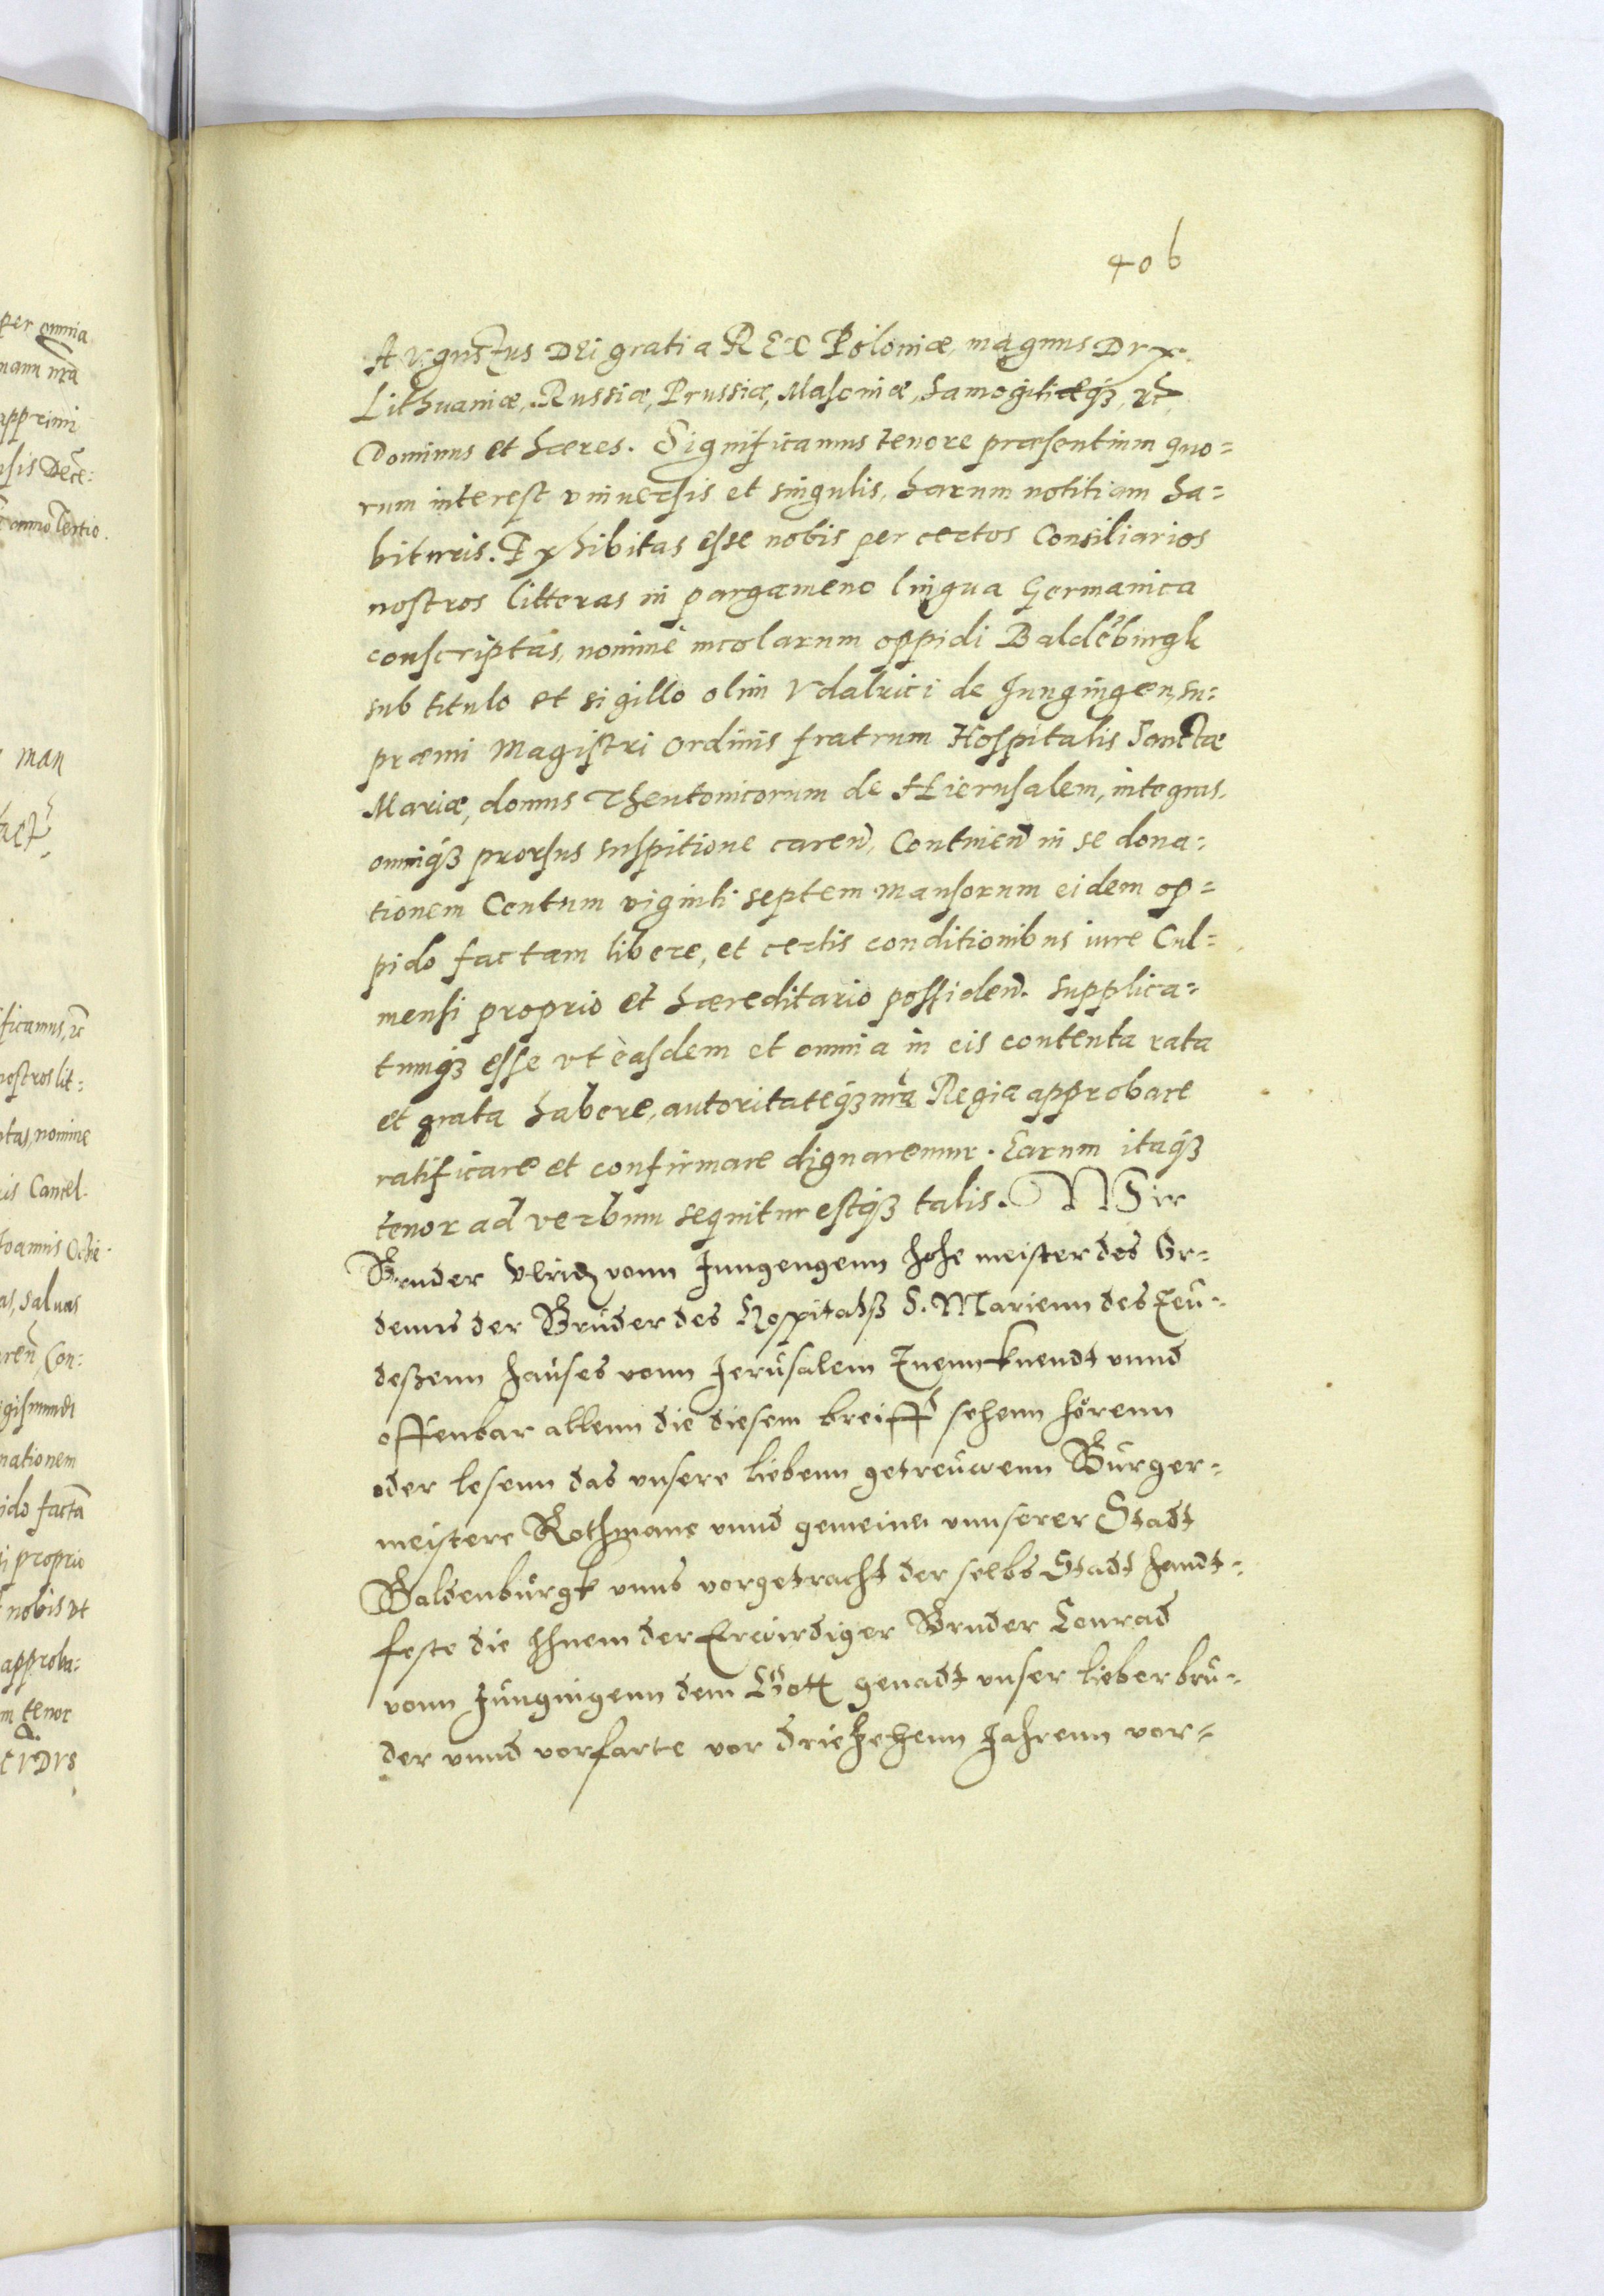 406
AVgustus DEi gratia REX Poloniæ, magnus Dux
Lithuaniæ, Russiæ, Prussiæ, Masoniæ, Samogitiæq3, etc
Dominus et hæres. Significamus tenore præsentium quo=
rum interest vniuersis et singulis, harum notitiam ha=
bituris. Exhibitas esse nobis per certos Consiliarios
nostros litteras in pargameno lingua Germanica
conscriptas, nomine incolarum oppidi Baldēburgk
sub titulo et sigillo olim Vdalrici de Jungingen, su=
præmi Magistri Ordinis fratrum Hospitalis Sanctæ
Mariæ, domus Theutonicorum de Hierusalem, integras,
omniq3 prorsus suspitione careñ, Contineñ in se dona=
tionem Centum viginti septem mansorum eidem op=
pido factam libere, et certis conditionibus iure Cul=
mensi proprio et hæreditario possideñ. Supplica=
tumq3 esse vt easdem et omnia in eis contenta rata
et grata habere, autoritateq3 nr̃a Regia approbare
ratificare et confirmare dignaremur. Earum itaq3
tenor ad verbum sequitur estq3 talis. Wir
Bruder Vlrich vonn Jungengenn hohe meister des Or=
denns der Brüder des Hospitalß S. Marienn des Teu=
deßenn hauses vonn Jerusalem Thuenn kuendt vnnd
offenbar allenn die diesem breiff sehenn hörenn
oder lesenn das vnsere liebenn getreuwenn Burger=
meistere Rothmane vnnd gemeine vnnserer Stadt
Baldenburgk vnns vorgetracht der selbs Stadt handt=
feste die Ihnem der Erwirdiger Bruder Conrad
vonn Jungingenn dem Gott genadt vnser lieber bru=
der vnnd vorfarte vor driezehenn Jahrenn vor=
per omnia
nr̃a
apprimi
tertio.
man
ficamus, etc
nostros lit=
nomine
Cancel.
Joannis Ocie
saluas
Con:
nationem
factā
proprio
nobis vt
approba=
tenor